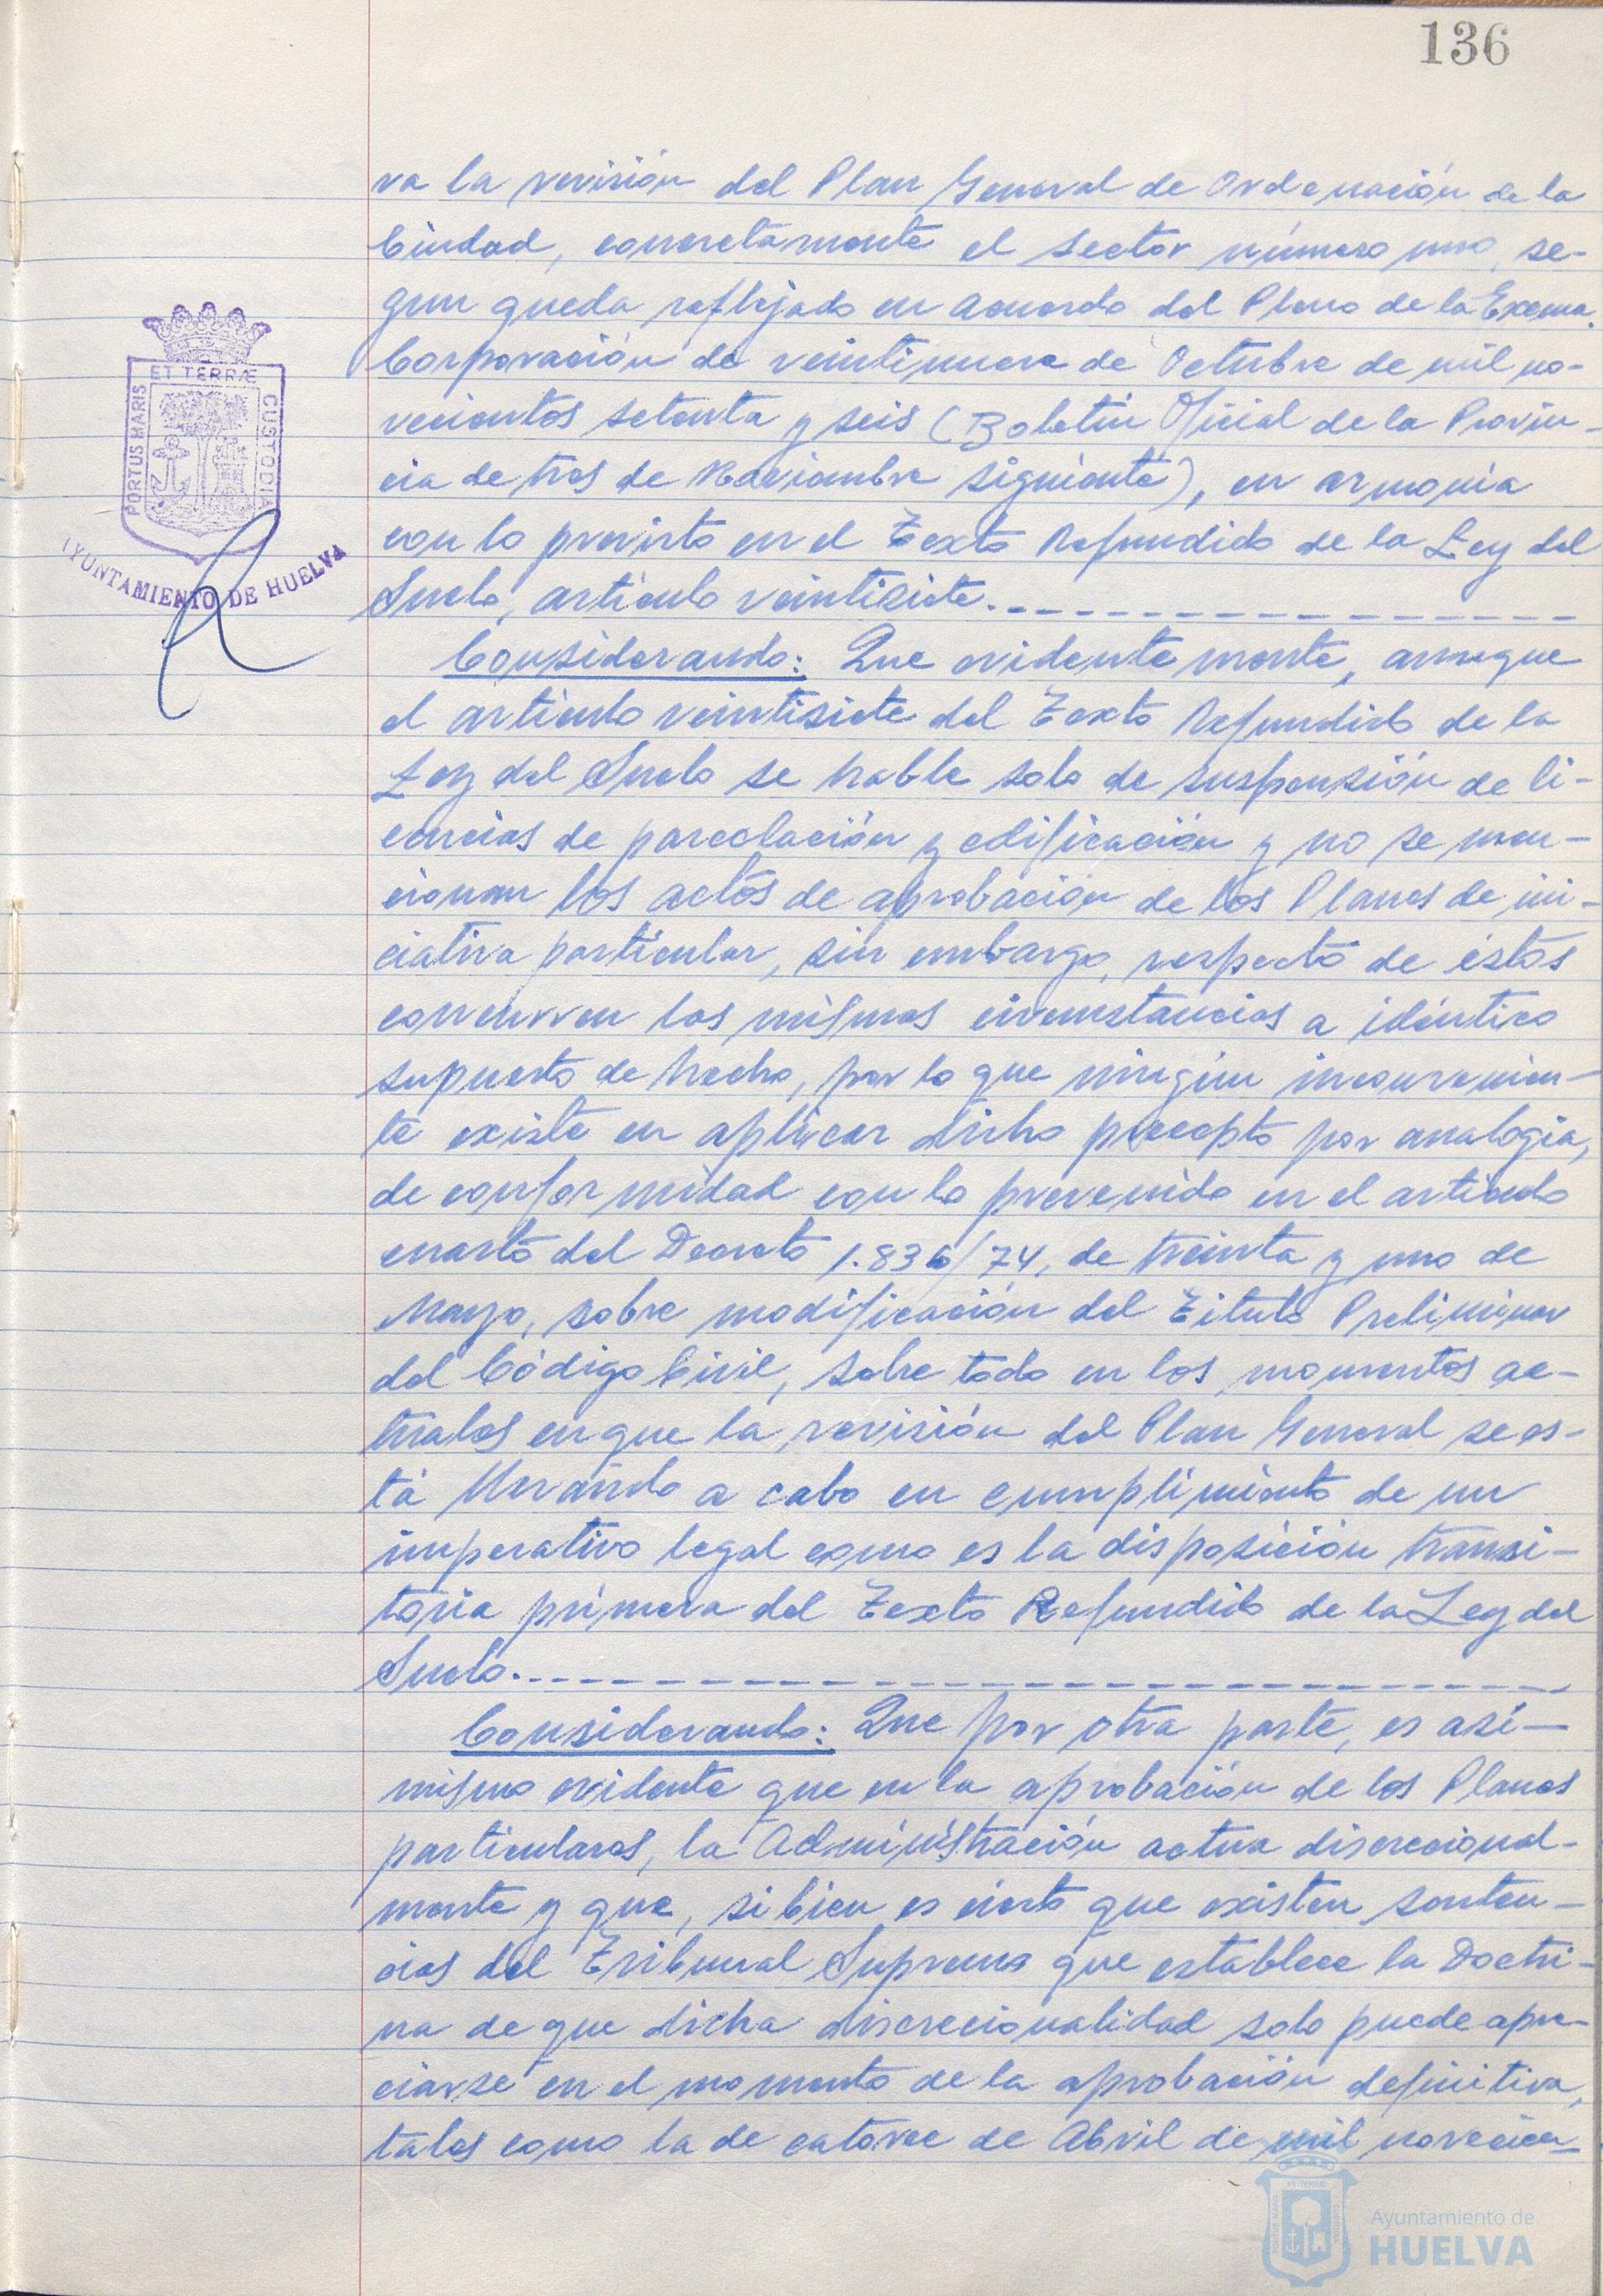 136
va la revisión del Plan General de Ordenación de la
Ciudad, concretamente el sector número uno, se-
gun queda reflejado en acuerdo del Pleno de la Excma.
Corporación de veintinueve de Octubre de mil no-
vecientos setenta y seis (Boletín Oficial de la Provin-
cia de tres de Noviembre siguiente), en armonía
con lo previsto en el Texto Refundido de la Ley del
Suelo, artículo veintisiete.
Considerando: Que evidentemente, aunque
el artículo veintisiete del Texto Refundido de la
Ley del Suelo se hable solo de suspensión de li-
cencias de parcelación y edificación y no se men-
cionan los actos de aprobación de los Planes de ini-
ciativa particular, sin embargo, respecto de éstos
concurren las mismas circunstancias a idéntico
supuesto de hecho, por lo que ningún inconvenien-
te existe en aplicar dicho precepto por analogía,
de conformidad con lo prevenido en el artículo
cuarto del Decreto 1.836/74, de treinta y uno de
Mayo, sobre modificación del Título Preliminar
del Código Civil, sobre todo en los momentos ac-
tuales en que la revisión del Plan General se es-
tá llevando a cabo en cumplimiento de un
imperativo legal como es la disposición transi-
toria primera del Texto Refundido de la Ley del
Suelo.
Considerando: Que por otra parte, es así-
mismo evidente que en la aprobación de los Planes
particulares, la Administración actua discrecional-
mente y que, si bien es cierto que existen senten-
cias del Tribunal Supremo que establece la Doctri-
na de que dicha discrecionalidad solo puede apre-
ciarse en el momento de la aprobación definitiva,
tales como la de catorce de Abril de mil novecien-
PORTUS MARIS ET TERRÆ CUSTODIA
AYUNTAMIENTO DE HUELVA
Ayuntamiento de
HUELVA